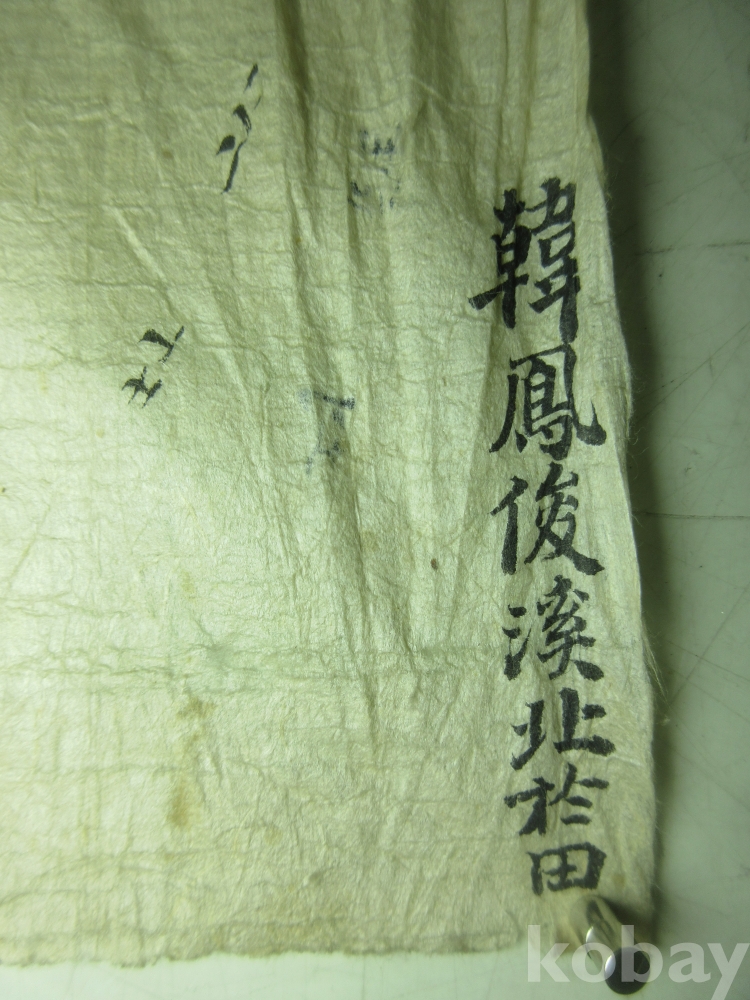 韓鳳俊溪北於田
kobay